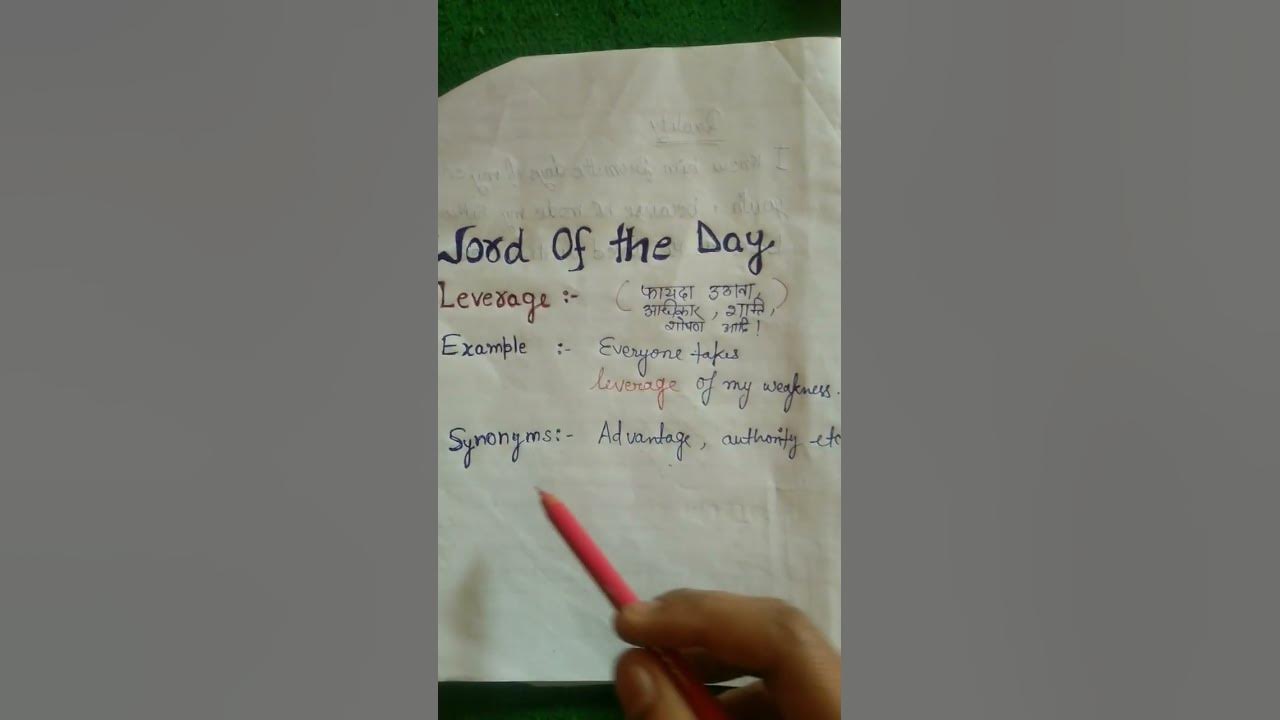 Word Of the Day
Leverage :- ( फायदा उठाना,
अधिकार, शक्ति,
शोषण आदि! )
Example :- Everyone takes
leverage of my weakness.
Synonyms:- Advantage, authority etc